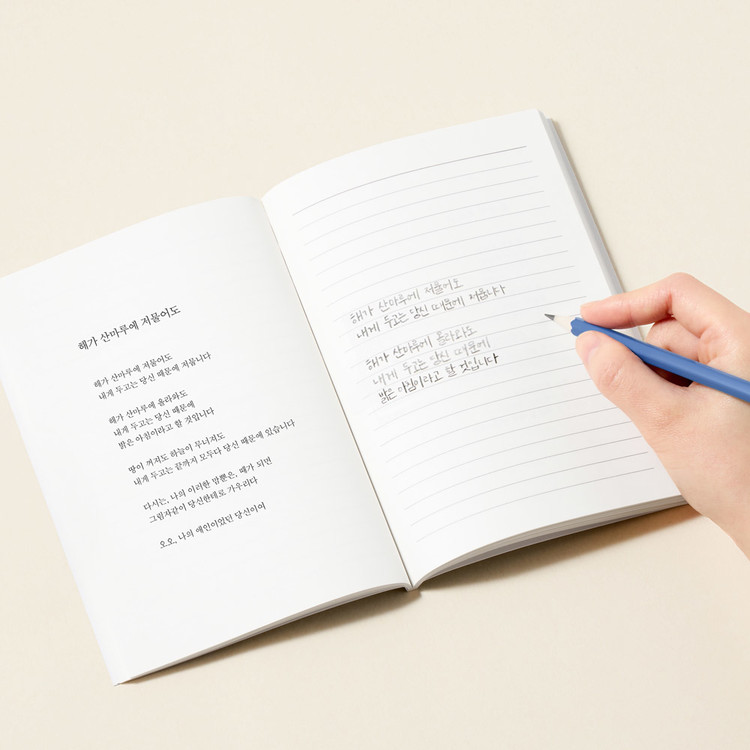 해가 산마루에 저물어도
해가 산마루에 저물어도
내게 두고는 당신 때문에 저뭅니다
해가 산마루에 올라와도
내게 두고는 당신 때문에
밝은 아침이라고 할 것입니다
땅이 꺼져도 하늘이 무너져도
내게 두고는 끝까지 모두다 당신 때문에 있습니다
다시는, 나의 이러한 맘뿐은, 때가 되면
그림자같이 당신한테로 가우리다
오오, 나의 애인이었던 당신이여
해가 산마루에 저물어도
내게 두고는 당신 때문에 저뭅니다
해가 산마루에 올라와도
내게 두고는 당신 때문에
밝은 아침이라고 할 것입니다